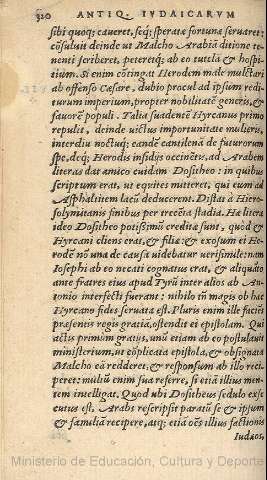 320 ANTIQ. IVDAICARVM
sibi quoq; caueret, seq; speratæ fortunæ seruaret:
cōsuluit deinde ut Malcho Arabiā ditione te-
nenti scriberet, peteretq; ab eo tutelā & hospi
tium. Si enim cōtingat Herodem male mulctari
ab offenso Cæsare, dubio procul ad ipsum redi-
turum imperium, propter nobilitatē generis, &
fauorē populi. Talia suadentē Hyrcanus primo
repulit, deinde uictus importunitate mulieris,
interdiu noctuq; eandē cantilenā de futurorum
spe, deq; Herodis insidijs occinētis, ad Arabem
literas dat amico cuidam Dositheo: in quibus
scriptum erat, ut equites mitteret, qui eum ad
Asphaltitem lacū deducerent. Distat à Hiero-
solymitanis finibus per trecēta stadia. Hæ literæ
ideo Dositheo potissimū creditæ sunt, quòd &
Hyrcani cliens erat, & filiæ: & exosum ei He-
rodē nō una de causa uidebatur uerisimile: nam
Iosephi ab eo necati cognatus erat, & aliquāto
ante fratres eius apud Tyrū inter alios ab An-
tonio interfecti fuerant: nihilo tn̄ magis ob hæc
Hyrcano fides seruata est. Pluris enim ille faciēs
præsentis regis gratiā, ostendit ei epistolam. Qui
actis primum gratijs, unū etiam ab eo postulauit
ministerium, ut cōplicata epistola, & obsignata
Malcho eā redderet, & responsum ab illo reci-
peret: multū enim sua referre, si etiā illius men-
tem intelligat. Quod ubi Dositheus sedulo exse
cutus est, Arabs rescripsit paratū se & ipsum
& familiā recipere, atq; etiā oēs illius factionis
Iudæos,
Ministerio de Educación, Cultura y Deporte